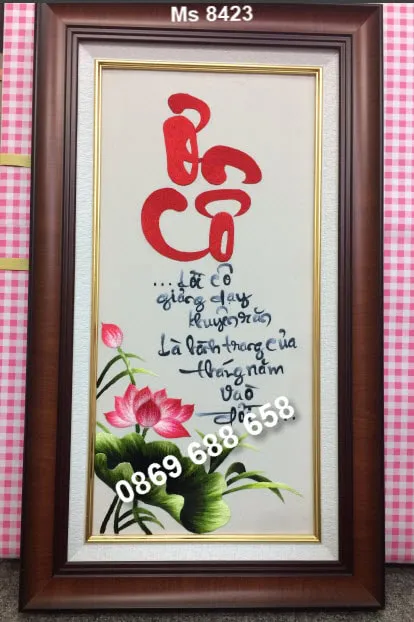 Ms 8423
Ơn
Cô
...Lời cô
giảng dạy
khuyên răn
Là hành trang của
tháng năm
vào
đời...
0869 688 658